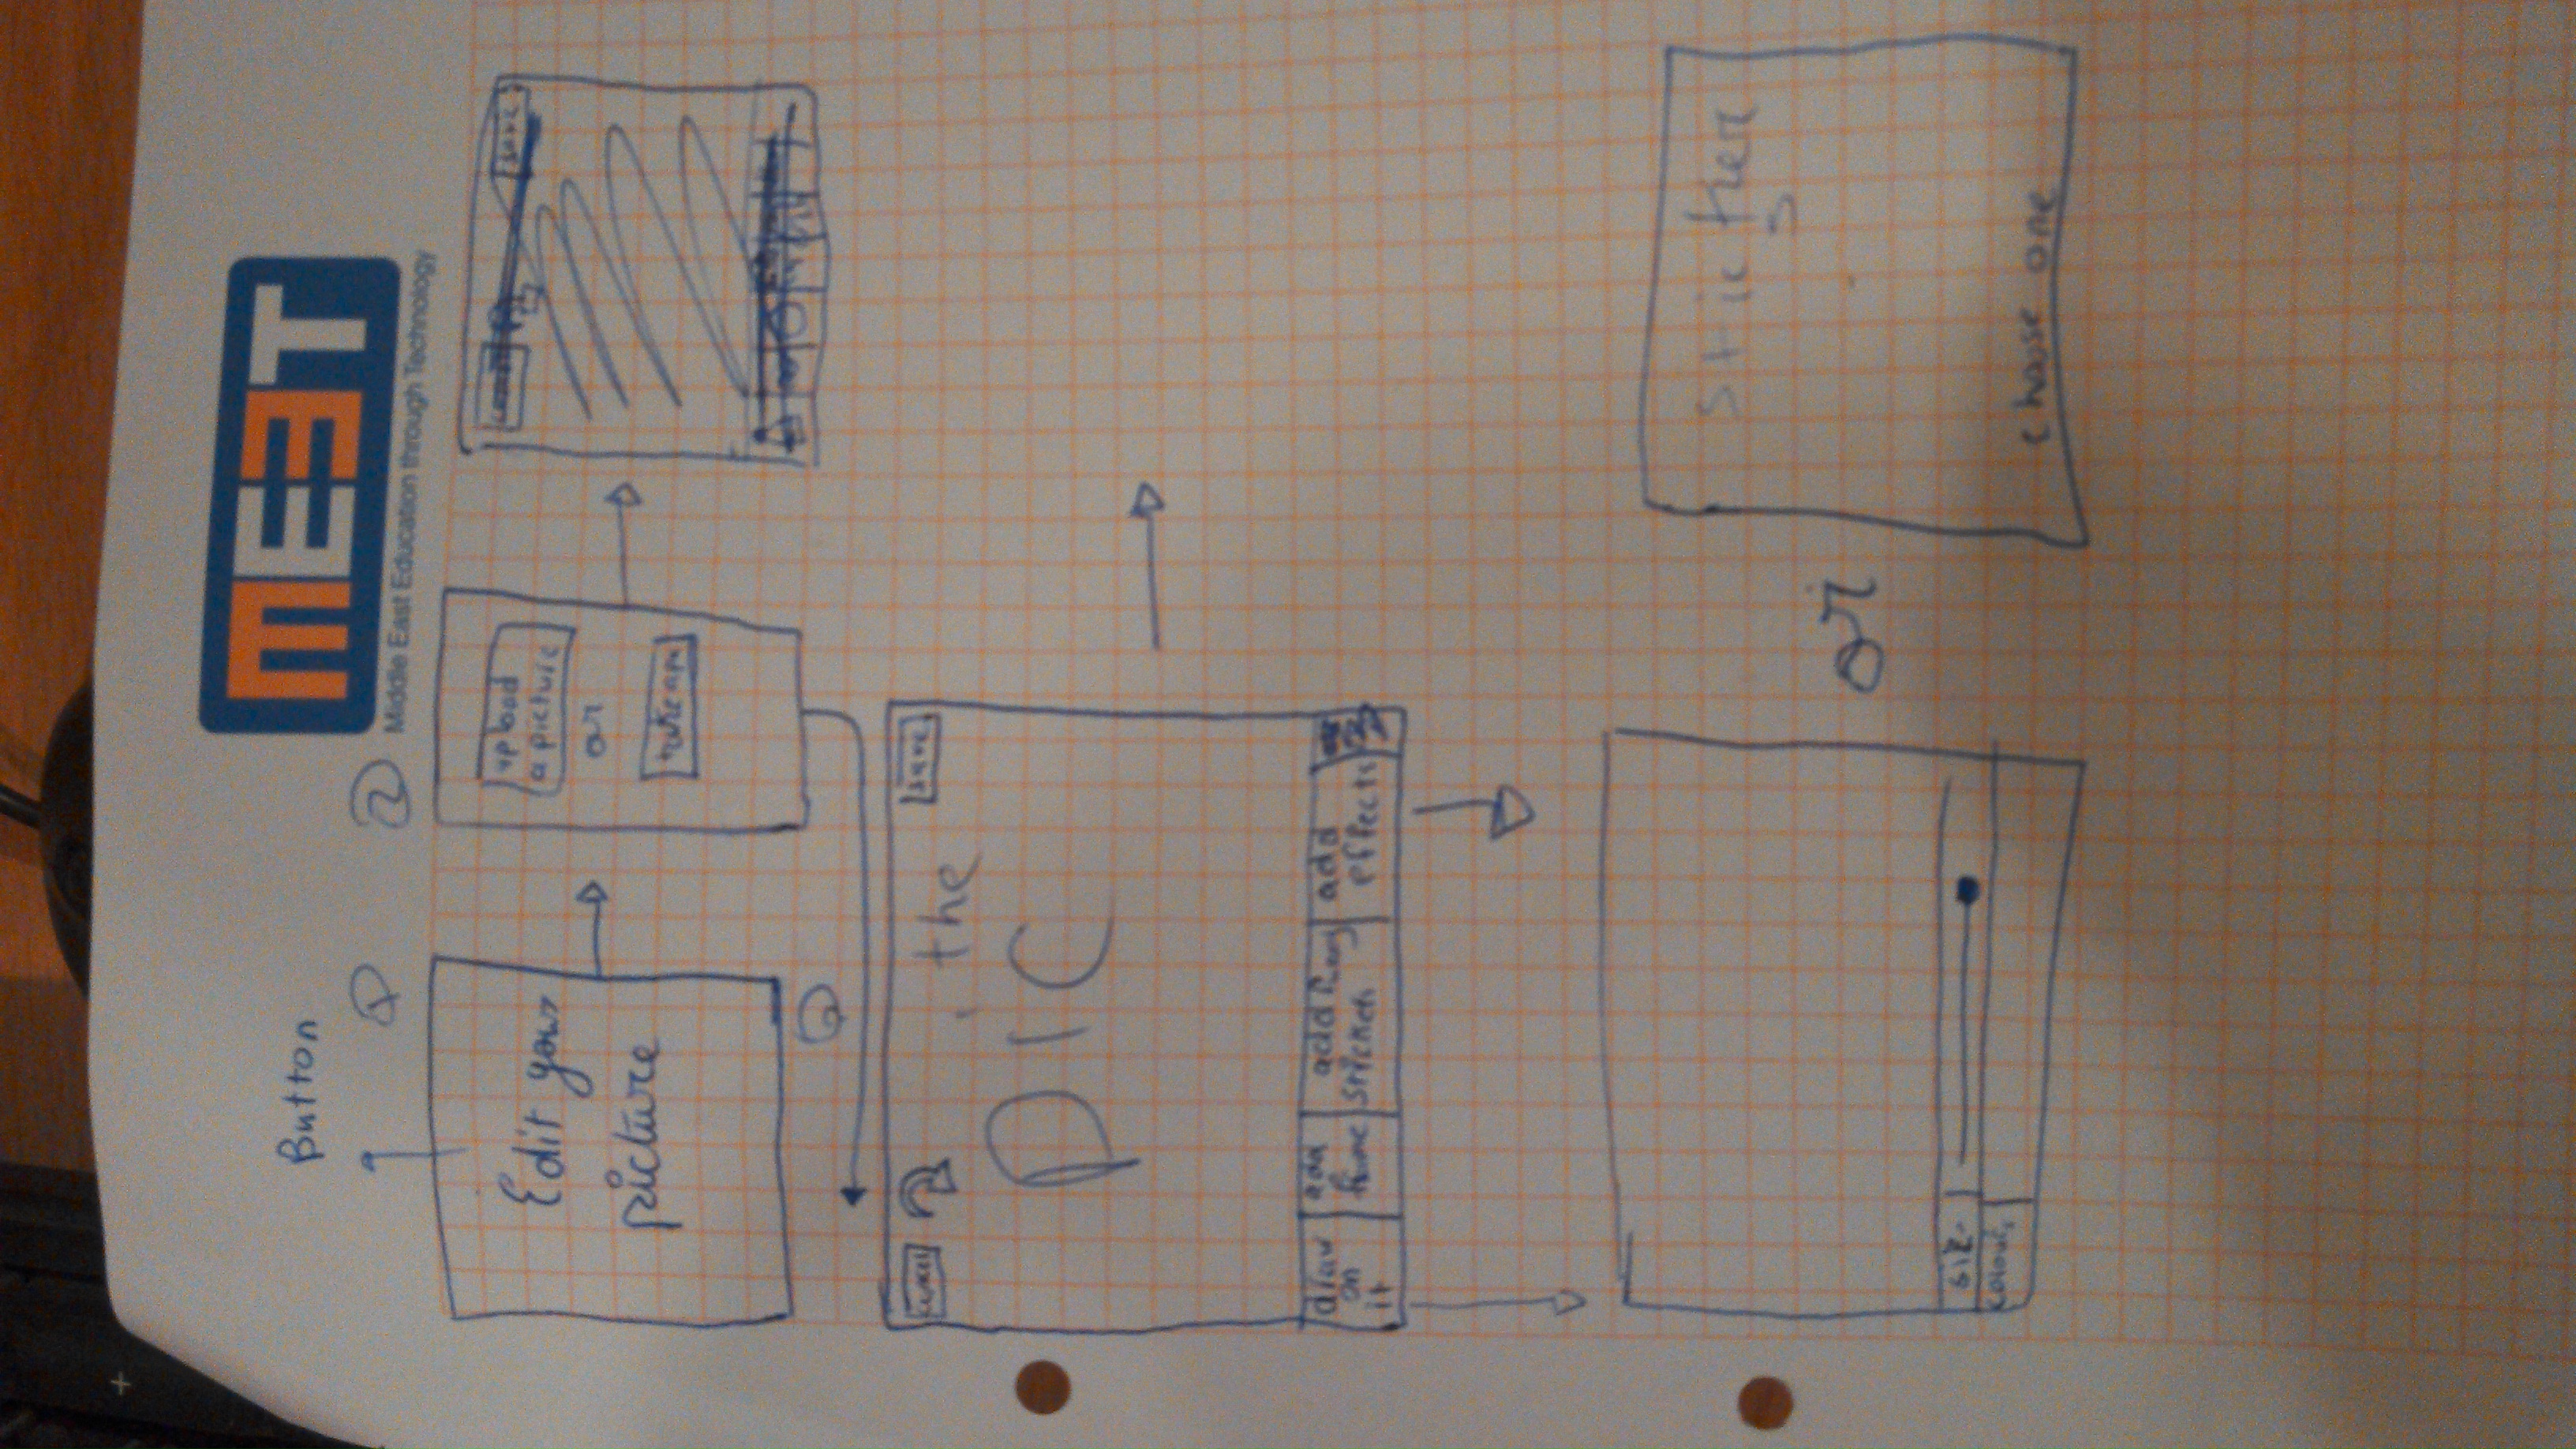 MEET
Middle East Education through Technology
Button
1
2
Edit your
picture
upload
a picture
or
save
cancel
save
the
pic
draw
on
it
add
frame
add funny
stickers
add
effects
or
sticker
s
size
colour
choose one